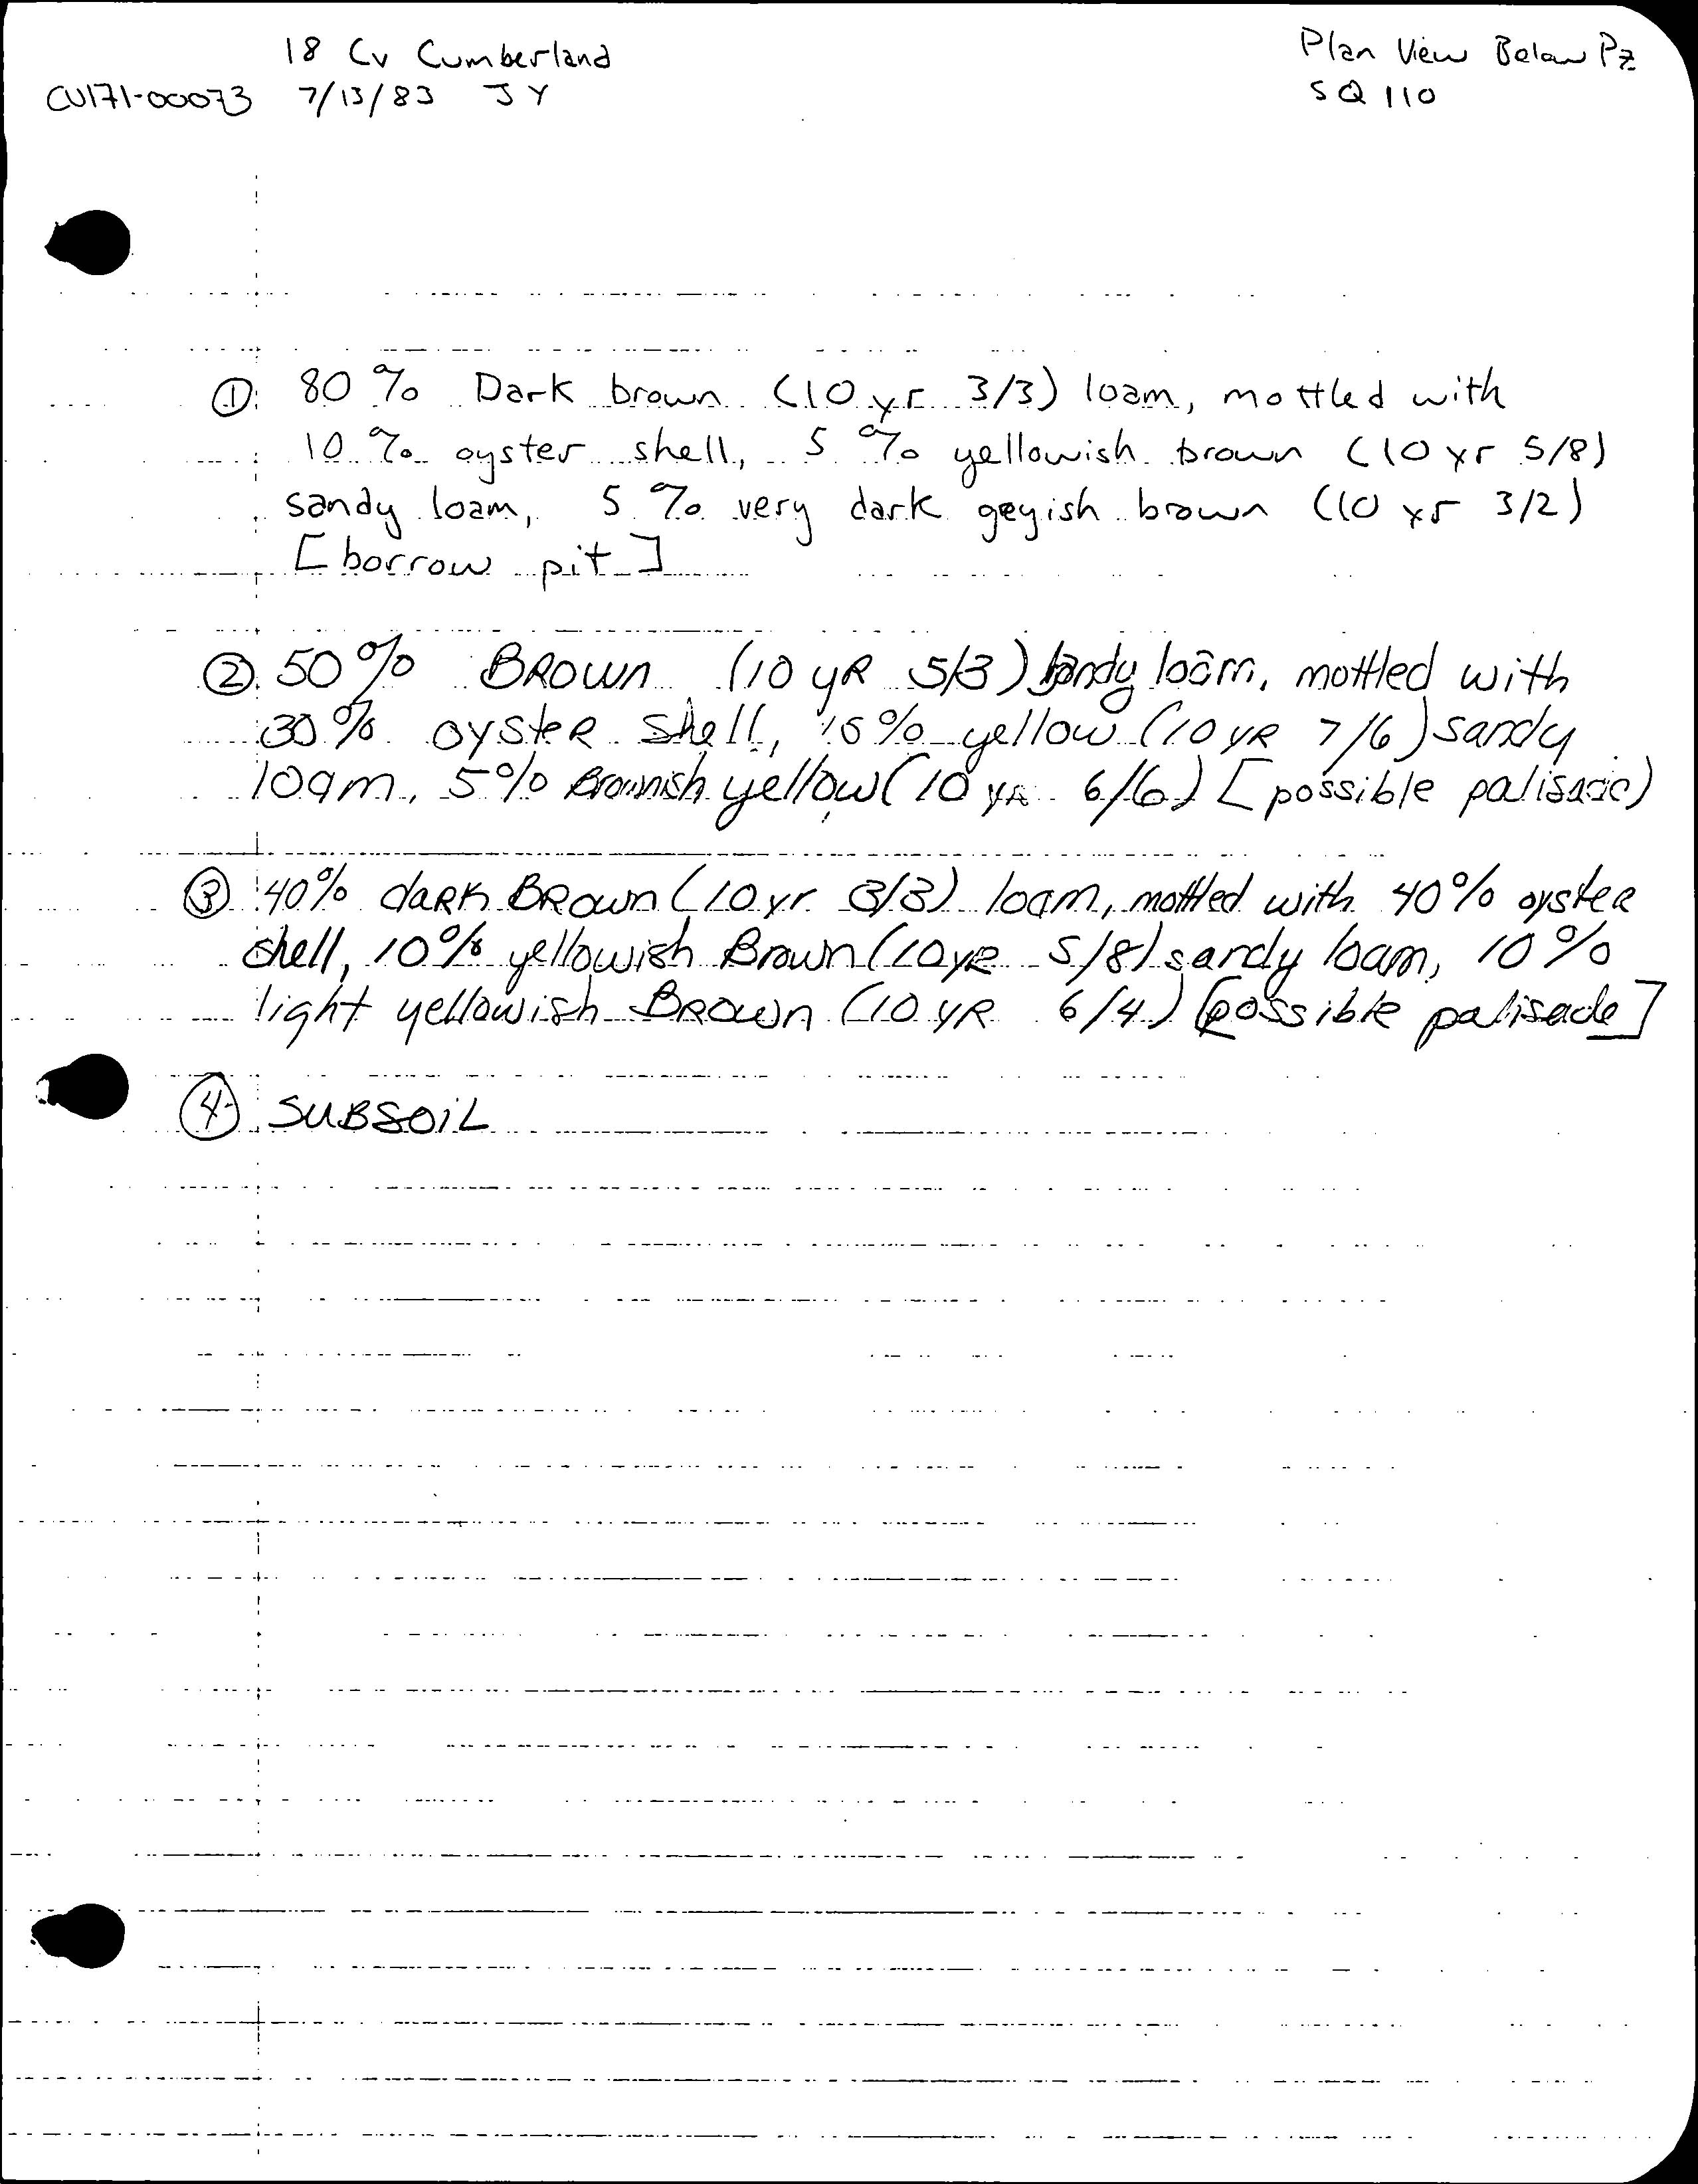 18 Cv Cumberland
Plan View Below Pz
CU171-00073 7/13/83 JY
SQ 110
① 80 % Dark brown (10 yr 3/3) loam, mottled with
10 % oyster shell, 5 % yellowish brown (10 yr 5/8)
sandy loam, 5 % very dark geyish brown (10 yr 3/2)
[borrow pit]
② 50% BROWN (10 yR 5/3) sandy loam, mottled with
30% oysteR shell, 15% yellow (10 yR 7/6) sandy
loam, 5% Brownish yellow (10 yR 6/6) [possible palisade)
③ 40% daRk BRown (10 yr 3/3) loam, mottled with 40% oysteR
shell, 10% yellowish Brown (10 yR 5/8) sandy loam, 10%
light yellowish BROWN (10 YR 6/4) [possible palisade]
④ SUBSOiL